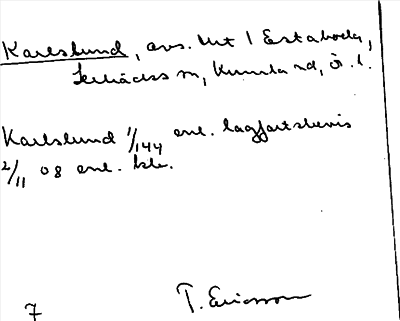 Karlslund, avs. lht 1 Estaboda,
Lerbäcks sn, Kumla hd, Ö. l.
Karlslund 1/144 enl. lagfartsbevis
2/11 08 enl. kbr.
T. Ericsson
7